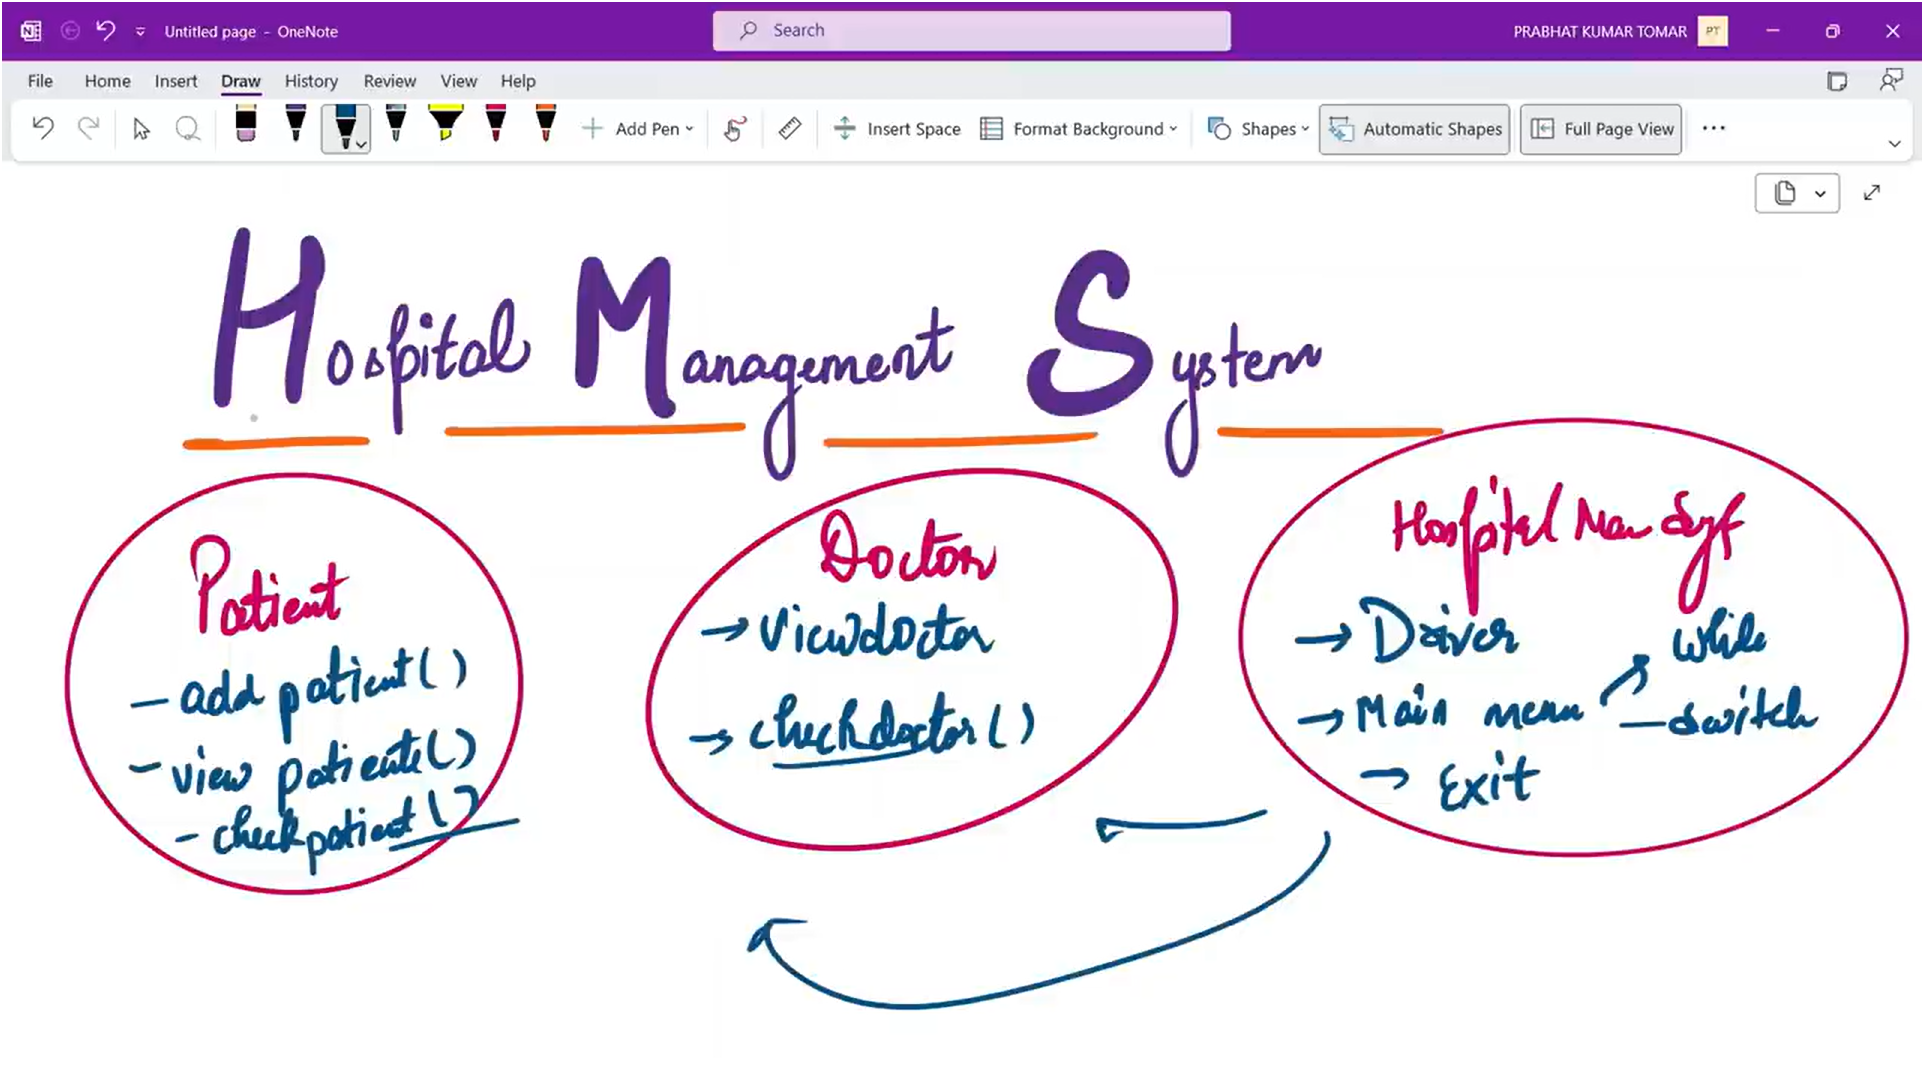 Untitled page - OneNote
Search
PRABHAT KUMAR TOMAR PT
File Home Insert Draw History Review View Help
Add Pen Insert Space Format Background Shapes Automatic Shapes Full Page View
Hospital Management System
Patient
- add patient()
- view patients()
- check patient()
Doctor
→ Viewdoctor
→ checkdoctor()
Hospital Man Syt
→ Driver
→ Main menu
while
- switch
→ Exit